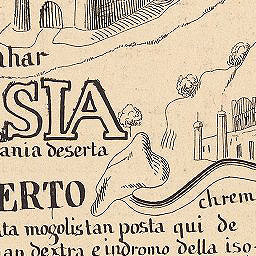 ahar
SIA
ania deserta
ERTO
chrem
ta mogolistan posta qui de
an dextra e indromo della iso-